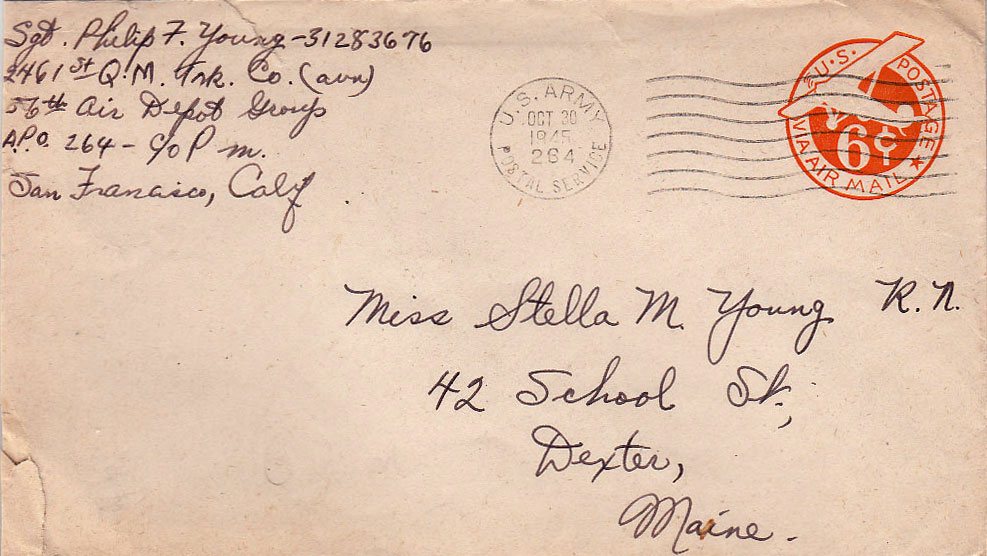 Sgt. Philip F. Young - 31283676
2461st Q.M. Trk. Co. (avn)
56th Air Depot Group
A.P.O. 264 - c/o P m.
San Francisco, Calif.
U.S. ARMY
OCT 30
1945
264
POSTAL SERVICE
U.S. POSTAGE
6¢
VIA AIR MAIL
Miss Stella M. Young R.N.
42 School St.,
Dexter,
Maine.